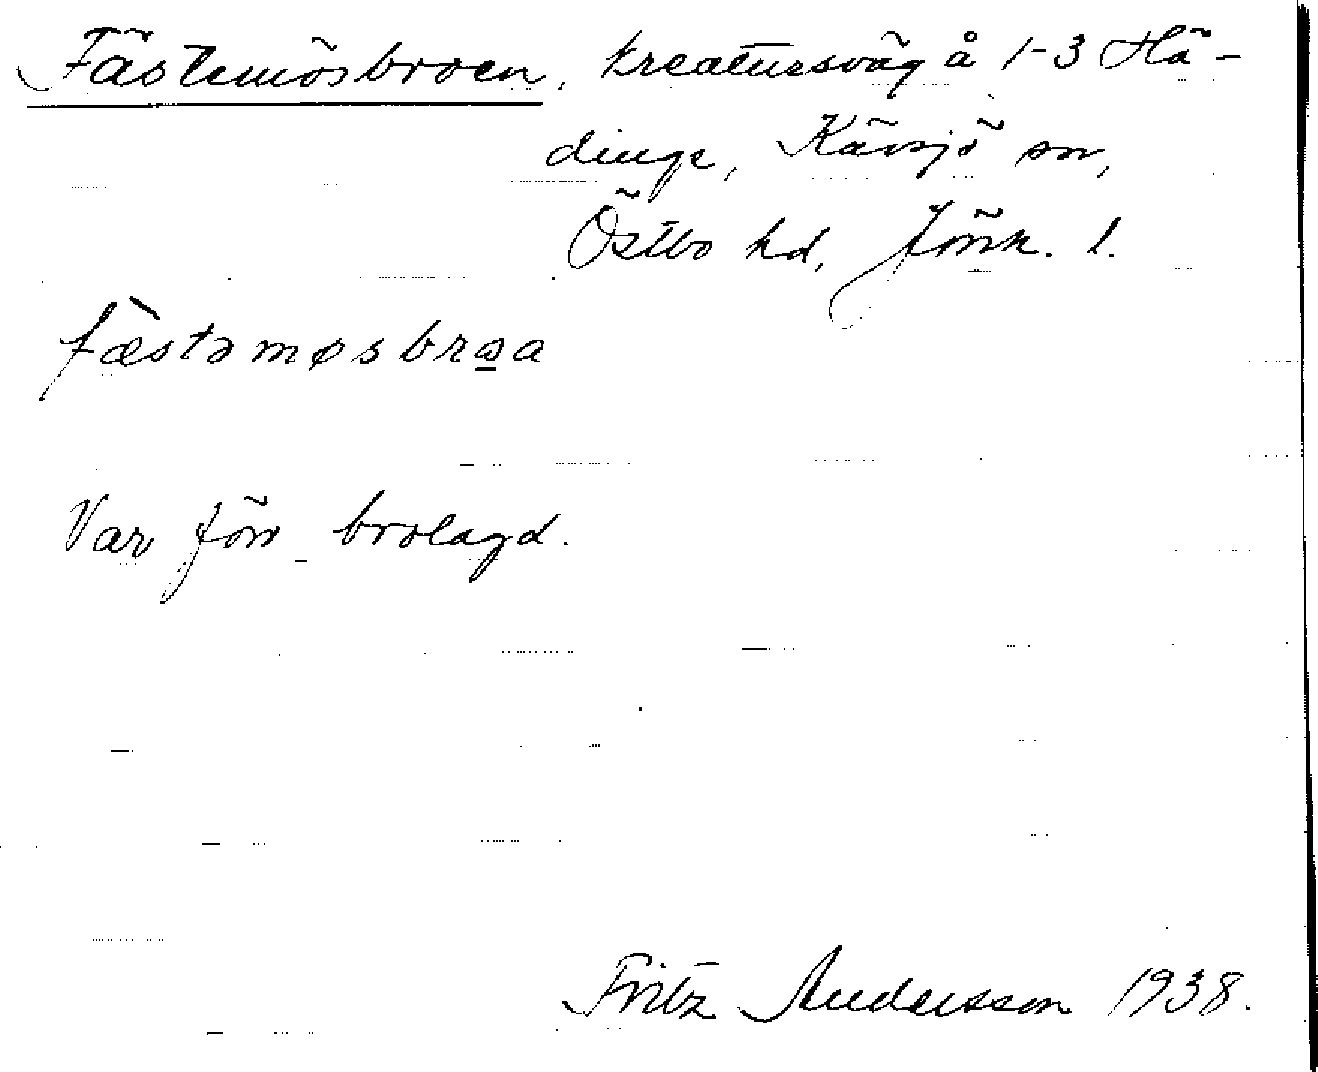 Fästemösbroen, kreatursväg å 1-3 Hä-
dinge, Kävsjö sn,
Östbo hd, Jönk. l.
fæ̀stəmøsbrəa
Var förr brolagd.
Fritz Andersson 1938.